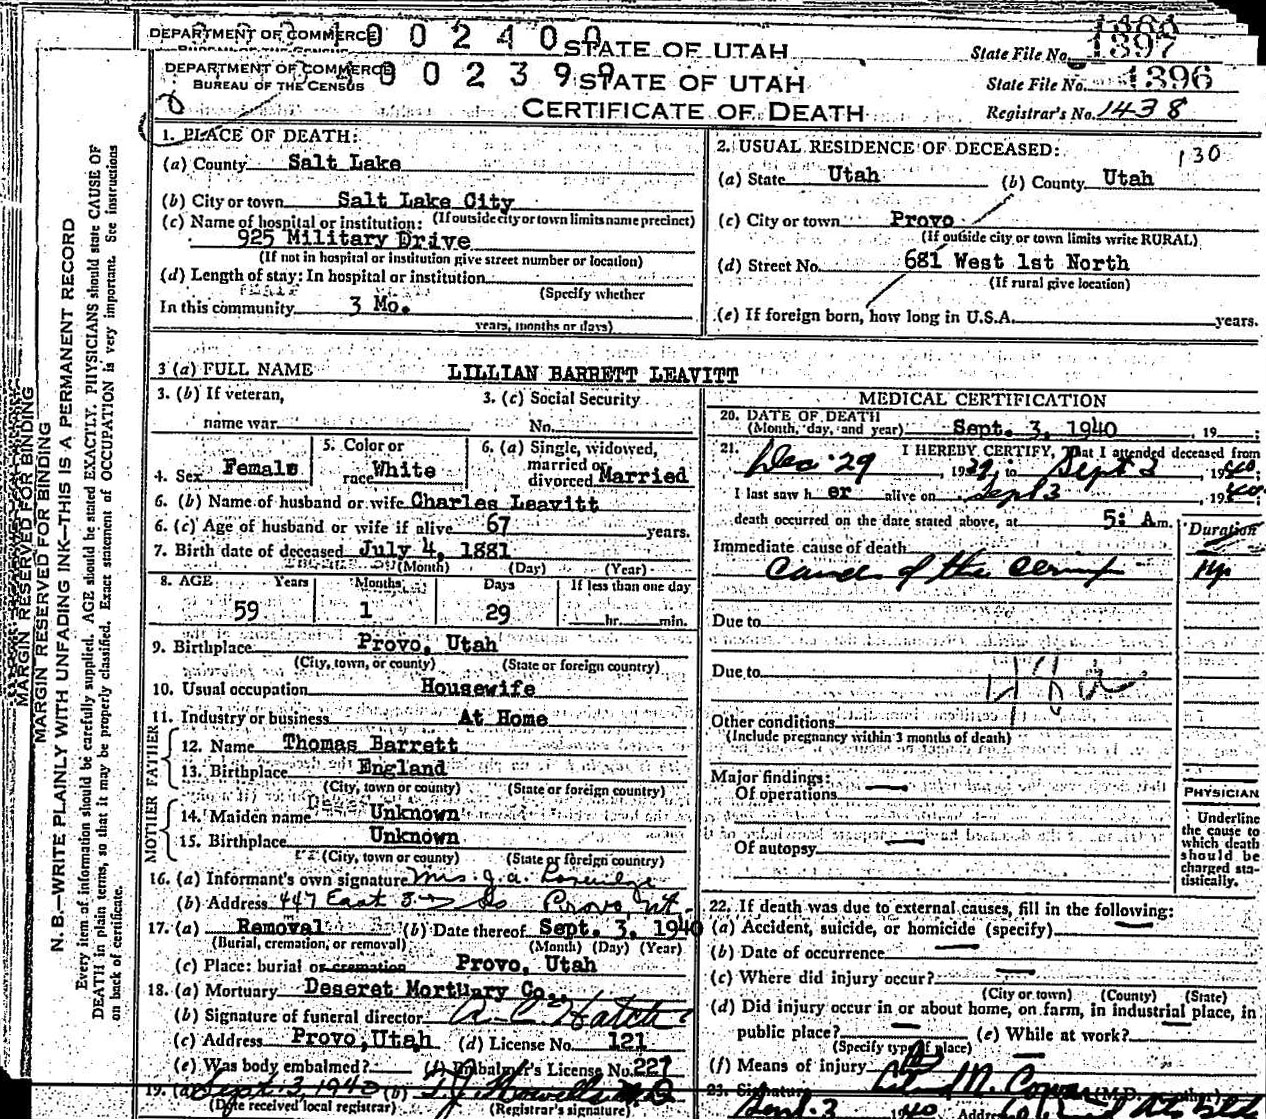 DEPARTMENT OF COMMERCE 002400 STATE OF UTAH State File No. 1397
DEPARTMENT OF COMMERCE 002399 STATE OF UTAH State File No. 1396
BUREAU OF THE CENSUS
CERTIFICATE OF DEATH Registrar's No. 1438
1. PLACE OF DEATH:
(a) County Salt Lake
(b) City or town Salt Lake City
(If outside city or town limits name precinct)
(c) Name of hospital or institution:
925 Military Drive
(If not in hospital or institution give street number or location)
(d) Length of stay: In hospital or institution
(Specify whether
In this community 3 Mo.
years, months or days)
2. USUAL RESIDENCE OF DECEASED: 130
(a) State Utah (b) County Utah
(c) City or town Provo
(If outside city or town limits write RURAL)
(d) Street No. 681 West 1st North
(If rural give location)
(e) If foreign born, how long in U.S.A. years.
3 (a) FULL NAME LILLIAN BARRETT LEAVITT
3. (b) If veteran, 3. (c) Social Security
name war No.
4. Sex Female 5. Color or race White 6. (a) Single, widowed, married or divorced Married
6. (b) Name of husband or wife Charles Leavitt
6. (c) Age of husband or wife if alive 67 years.
7. Birth date of deceased July 4, 1881
(Month) (Day) (Year)
8. AGE Years Months Days If less than one day
59 1 29 hr. min.
9. Birthplace Provo, Utah
(City, town, or county) (State or foreign country)
10. Usual occupation Housewife
11. Industry or business At Home
FATHER
12. Name Thomas Barrett
13. Birthplace England
(City, town or county) (State or foreign country)
MOTHER
14. Maiden name Unknown
15. Birthplace Unknown
(City, town or county) (State or foreign country)
16. (a) Informant's own signature Mrs. J. A.
(b) Address 447 East 3 So Provo Ut.
17. (a) Removal (b) Date thereof Sept. 3, 1940
(Burial, cremation, or removal) (Month) (Day) (Year)
(c) Place: burial or cremation Provo, Utah
18. (a) Mortuary Deseret Mortuary Co.
(b) Signature of funeral director A. C. Hatch
(c) Address Provo, Utah (d) License No. 121
(e) Was body embalmed? (f) Embalmer's License No. 227
19. (a) Sept. 3, 1940 (b) T. J. Howells M.D.
(Date received local registrar) (Registrar's signature)
MEDICAL CERTIFICATION
20. DATE OF DEATH
(Month, day, and year) Sept. 3, 1940, 19
21. I HEREBY CERTIFY, That I attended deceased from
Dec 29 1939, to Sept 3, 1940.
I last saw her alive on Sept 3, 1940.
death occurred on the date stated above, at 5: A m.
Immediate cause of death Duration
of the cervix
Due to
Due to
Other conditions
(Include pregnancy within 3 months of death)
Major findings:
Of operations
Of autopsy
PHYSICIAN
Underline
the cause to
which death
should be
charged sta-
tistically.
22. If death was due to external causes, fill in the following:
(a) Accident, suicide, or homicide (specify)
(b) Date of occurrence
(c) Where did injury occur?
(City or town) (County) (State)
(d) Did injury occur in or about home, on farm, in industrial place, in
public place? (e) While at work?
(Specify type of place)
(f) Means of injury
23. Signature Leland R. Cowan (M.D.
Sept. 3 1940 Address
MARGIN RESERVED FOR BINDING
MARGIN RESERVED FOR BINDING
N. B.—WRITE PLAINLY WITH UNFADING INK—THIS IS A PERMANENT RECORD
Every item of information should be carefully supplied. AGE should be stated EXACTLY. PHYSICIANS should state CAUSE OF
DEATH in plain terms, so that it may be properly classified. Exact statement of OCCUPATION is very important. See instructions
on back of certificate.